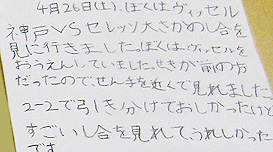 4月26日(土)、ぼくはヴィッセル
神戸VSセレッソ大さかのし合を
見に行きました。ぼくはヴィッセルを
おうえんしていました。せきが前の方
だったので、せん手を近くで見れました
2-2で引き分けでおしかったけど
すごいし合を見れて、うれしかった
です